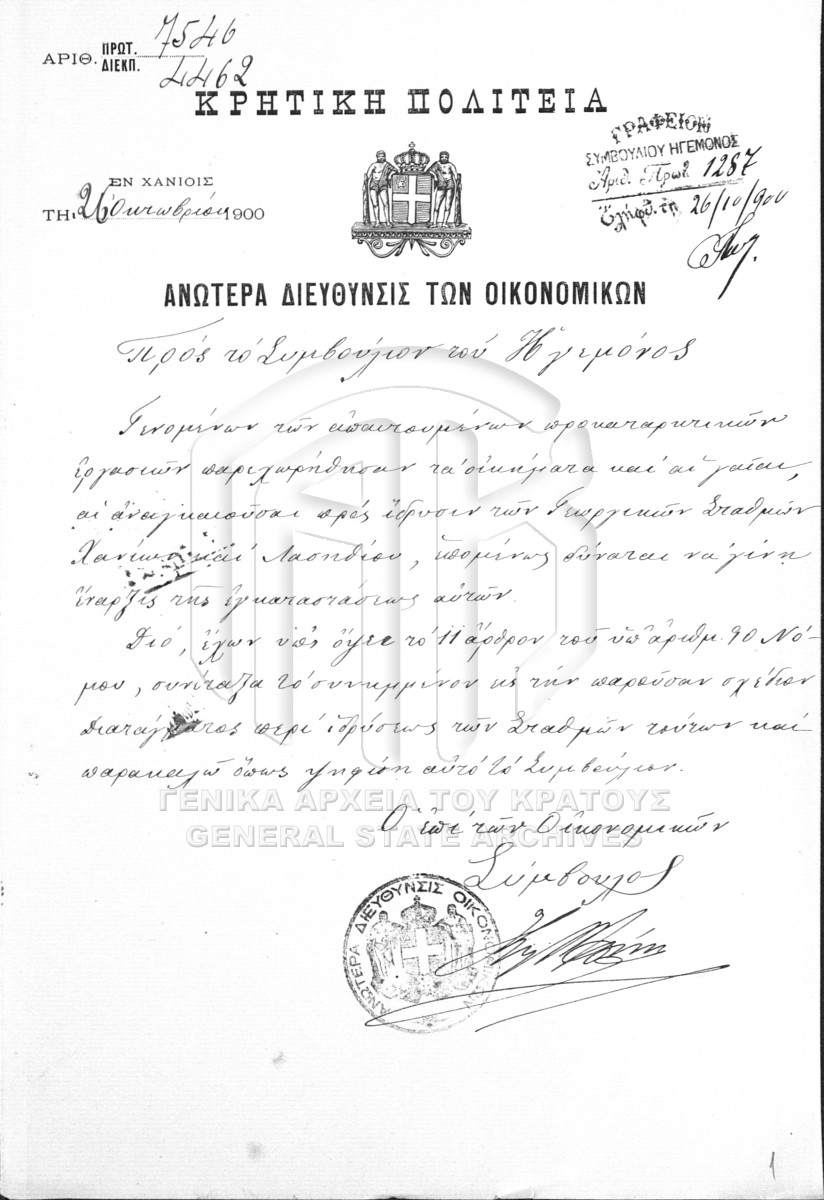 ΑΡΙΘ. ΠΡΩΤ. 7546
ΔΙΕΚΠ. 4462
ΚΡΗΤΙΚΗ ΠΟΛΙΤΕΙΑ
ΓΡΑΦΕΙΟΝ
ΣΥΜΒΟΥΛΙΟΥ ΗΓΕΜΟΝΟΣ
Αριθ. Πρωτ. 1287
Ἐλήφθ. τῇ 26/10/900
ΕΝ ΧΑΝΙΟΙΣ
ΤΗι 26 Ὀκτωβρίου 1900
ΑΝΩΤΕΡΑ ΔΙΕΥΘΥΝΣΙΣ ΤΩΝ ΟΙΚΟΝΟΜΙΚΩΝ
Πρός τό Συμβούλιον τοῦ Ἡγεμόνος
Γενομένων τῶν ἀπαιτουμένων προκαταρκτικῶν
ἐργασιῶν παρεχωρήθησαν τά οἰκήματα καί αἱ γαῖαι,
αἱ ἀναγκαιοῦσαι πρός ἵδρυσιν τῶν Γεωργικῶν Σταθμῶν
Χανίων καί Λασηθίου, ἑπομένως δύναται νά γίνῃ
ἔναρξις τῆς ἐγκαταστάσεως αὐτῶν.
Διό, ἔχων ὑπ' ὄψει τό 11 ἄρθρον τοῦ ὑπ' ἀριθμ. 90 Νό-
μου, συνέταξα τό συνημμένον εἰς τήν παροῦσαν σχέδιον
Διατάγματος περί ἱδρύσεως τῶν Σταθμῶν τούτων καί
παρακαλῶ ὅπως ψηφίσῃ αὐτό τό Συμβούλιον.
ΓΕΝΙΚΑ ΑΡΧΕΙΑ ΤΟΥ ΚΡΑΤΟΥΣ
GENERAL STATE ARCHIVES
Ὁ ἐπί τῶν Οἰκονομικῶν
Σύμβουλος
ΑΝΩΤΕΡΑ ΔΙΕΥΘΥΝΣΙΣ ΟΙΚΟΝΟΜΙΚΩΝ
1